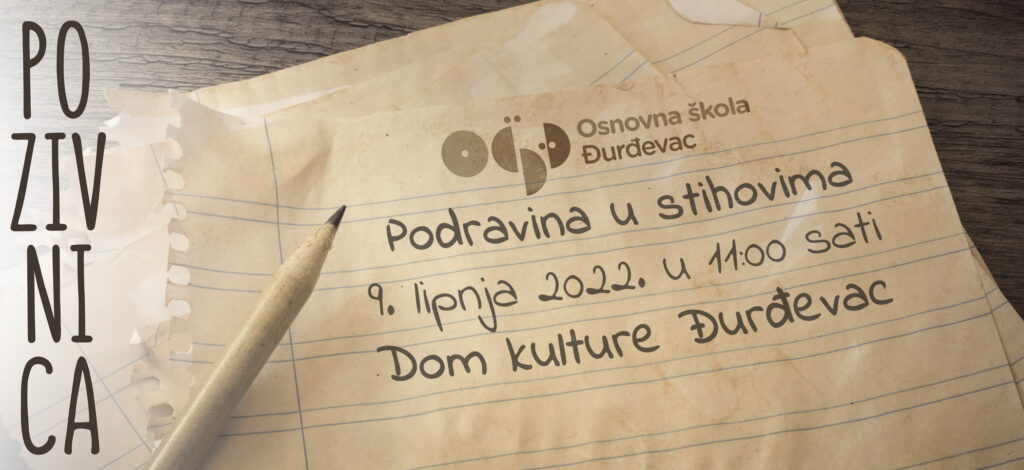 PO
ZIV
NI
CA
Osnovna škola
Đurđevac
Podravina u stihovima
9. lipnja 2022. u 11:00 sati
Dom kulture Đurđevac